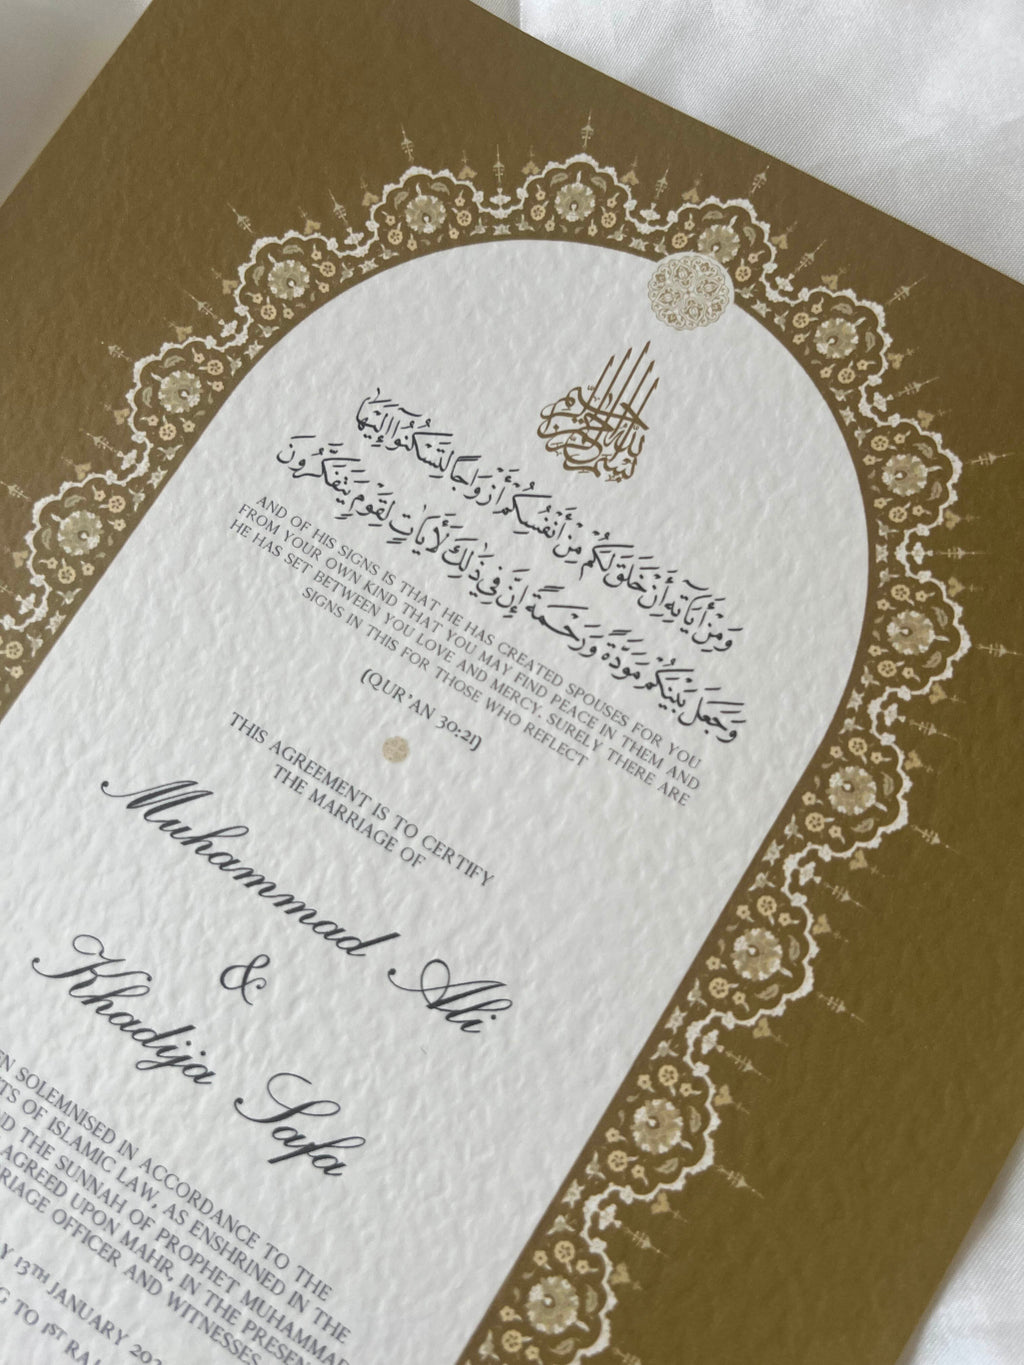 بسم الله الرحمن الرحيم
وَمِنْ أَيَاتِهِ أَنْ خَلَقَ لَكُمْ مِنْ أَنْفُسِكُمْ أَزْوَاجًا لِتَسْكُنُوا إِلَيْهَا
وَجَعَلَ بَيْنَكُمْ مَوَدَّةً وَرَحْمَةً إِنَّ فِي ذٰلِكَ لَأَيَاتٍ لِقَوْمٍ يَتَفَكَّرُونَ
AND OF HIS SIGNS IS THAT HE HAS CREATED SPOUSES FOR YOU
FROM YOUR OWN KIND THAT YOU MAY FIND PEACE IN THEM AND
HE HAS SET BETWEEN YOU LOVE AND MERCY. SURELY THERE ARE
SIGNS IN THIS FOR THOSE WHO REFLECT
(QUR'AN 30:21)
THIS AGREEMENT IS TO CERTIFY
THE MARRIAGE OF
Muhammad Ali
&
Khadija Safa
SOLEMNISED IN ACCORDANCE TO THE
OF ISLAMIC LAW, AS ENSHRINED IN THE
THE SUNNAH OF PROPHET MUHAMMAD
AGREED UPON MAHR, IN THE
OFFICER AND WITNESSES
13TH JANUARY
TO 1ST